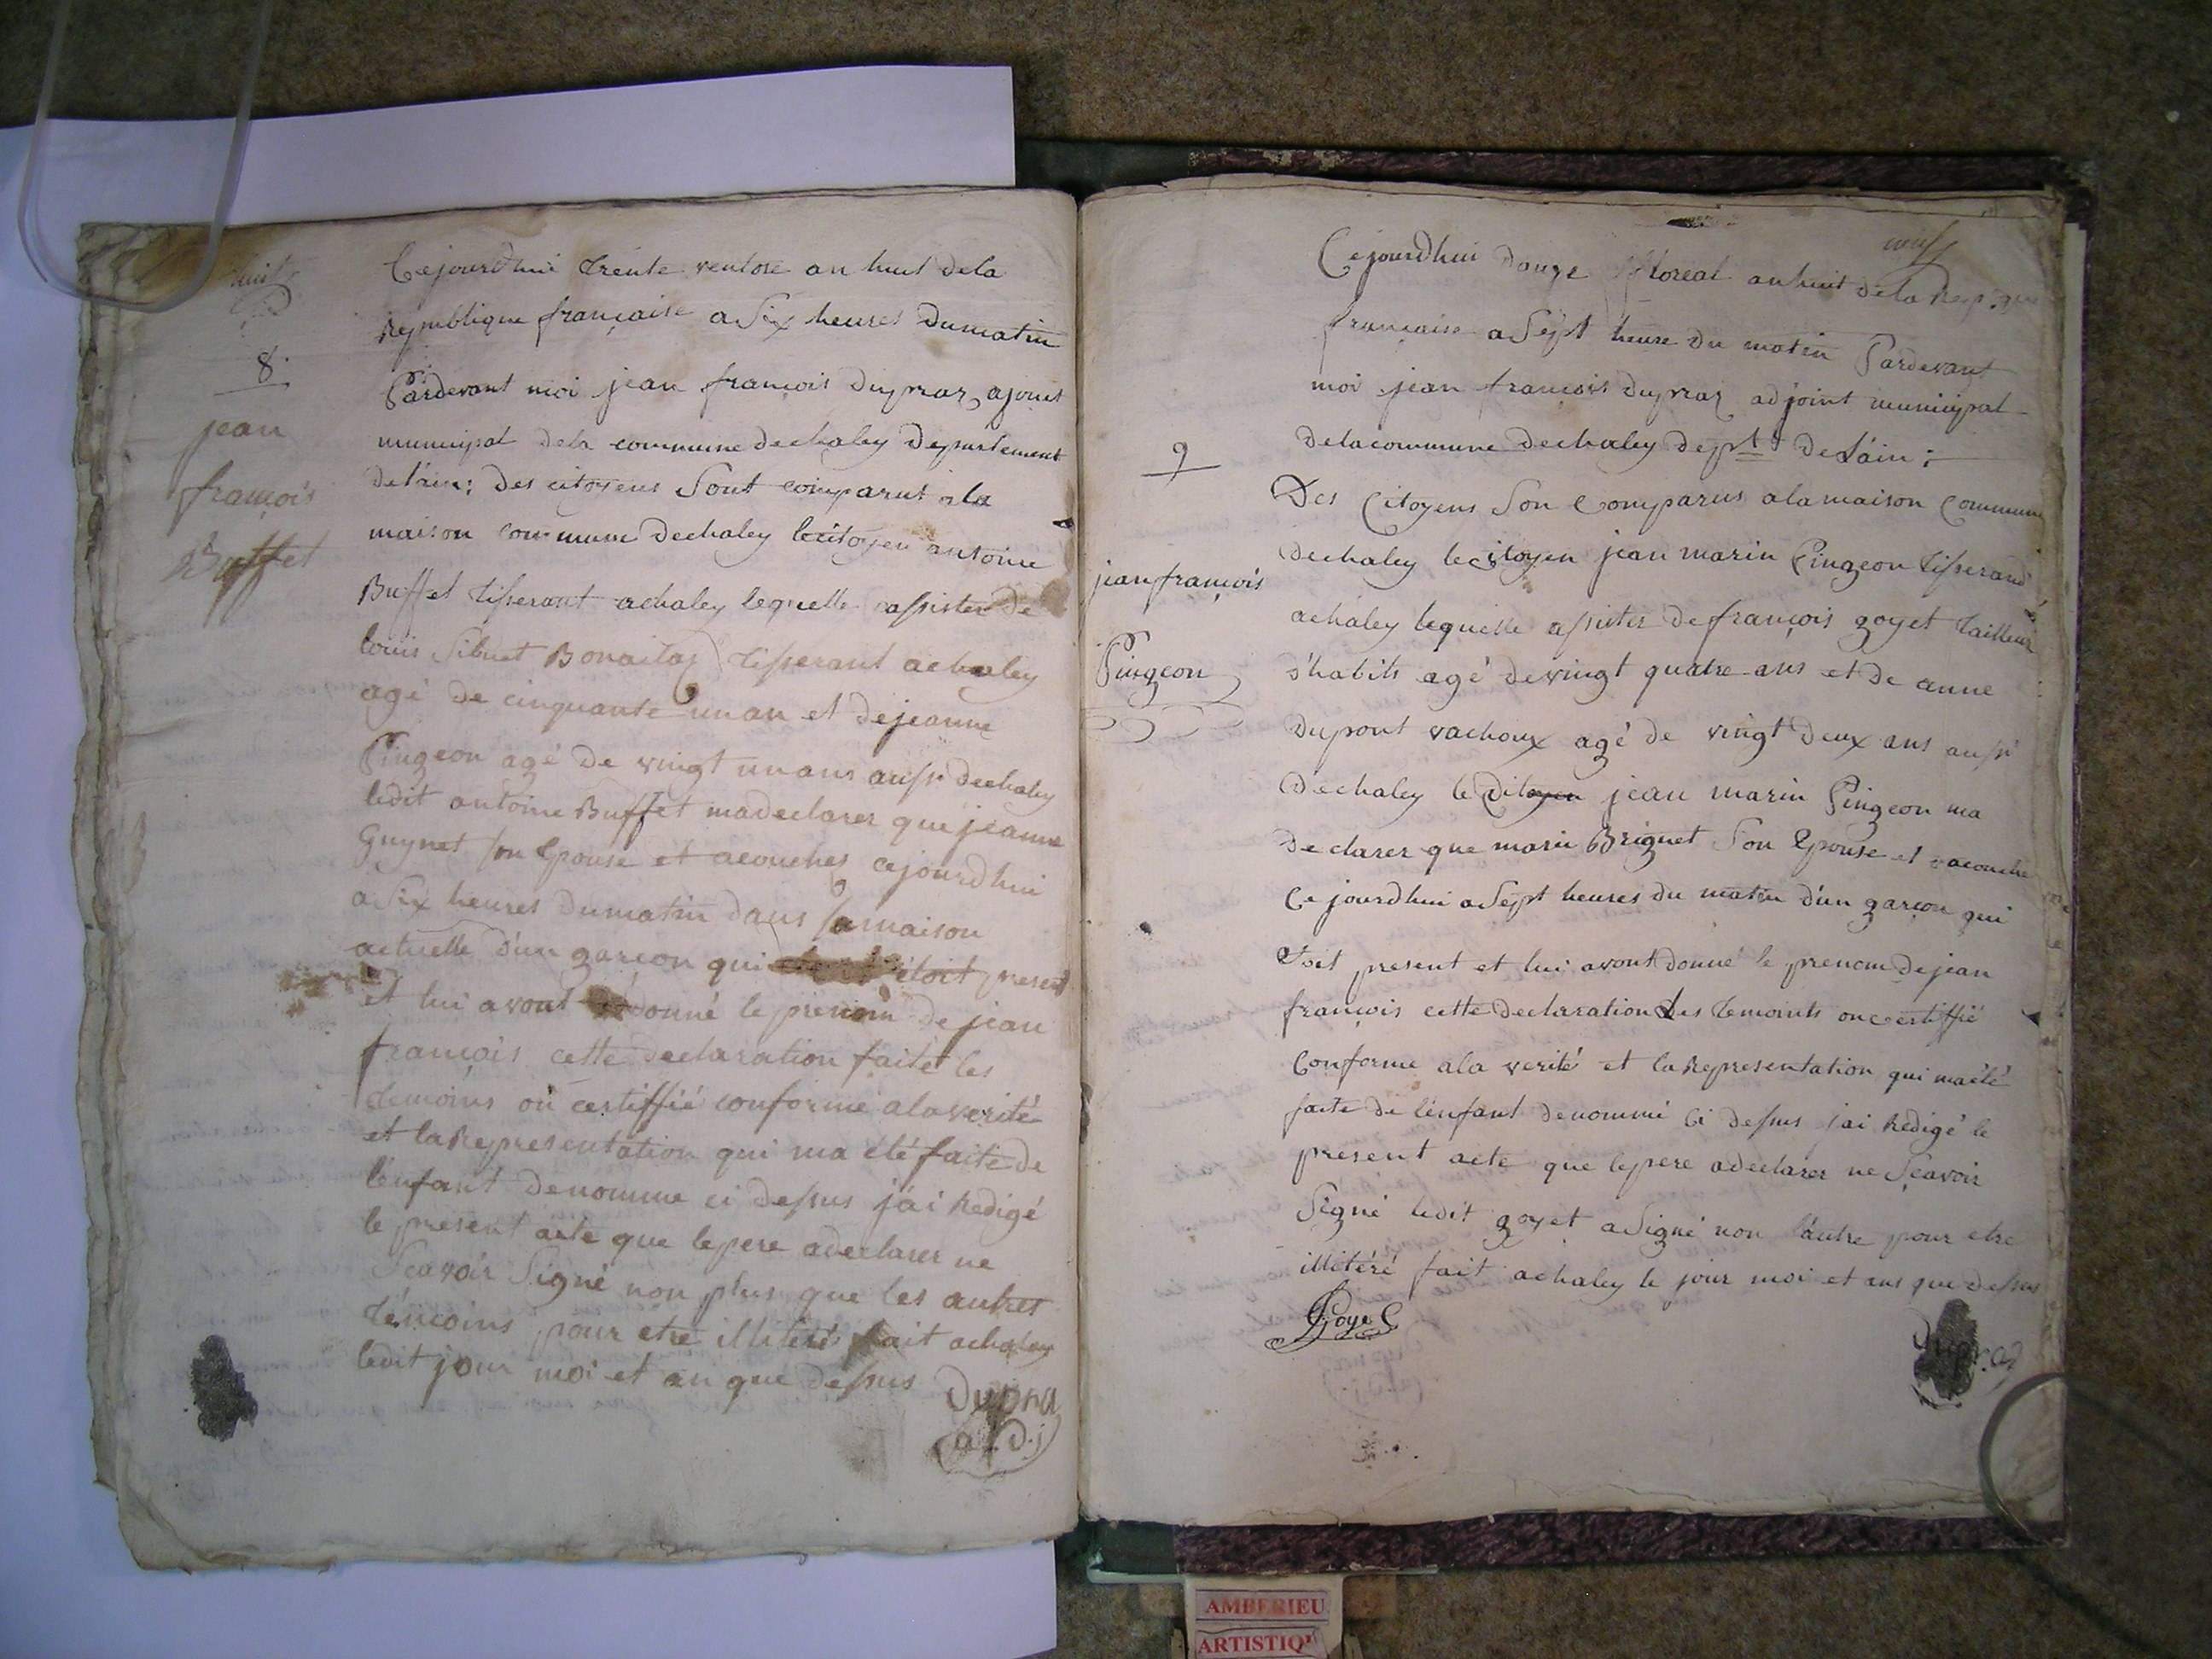 huit
8.
jean
françois
Buffet
Cejourdhui trente ventose an huit dela
Republique française a Six heures Dumatin
Pardevant moi jean françois Dupraz ajoint
municipal dela commune dechaley Departement
delain: Des citoyens Sont comparut a la
maison commune Dechaley lecitoyen antoine
Buffet tisserant achaley lequelle assister de
louis Sibuet Bonaitaz tisserant achaley
agé de cinquante un an et dejeanne
Pingeon agé de vingt un ans aussi dechaley
ledit antoine Buffet madeclarer que jeanne
Guynet son Epouse et acouchez cejourdhui
a Six heures Dumatin dans samaison
actuelle d'un garcon qui étoit present
et lui avont donné le prenom de jean
françois cette declaration faitet les
temoins on certiffié conforme alaverité
et laRepresentation qui ma été faite de
l'enfant denomme ci dessus j'ai Redigé
le present acte que lepere adeclarer ne
Scavoir Signé non plus que les autres
témoins pour etre illiteré fait achaley
ledit jour moi et an que dessus
Dupra
adj
neuf
9
jean françois
Pingeon
Cejourdhui Douze floreal anhuit dela Rep.que
française a Sept heure du matin Pardevant
moi jean françois Dupraz adjoint municipal
delacommune dechaley dept Delain;
Des Citoyens Son Comparus alamaison Commune
dechaley lecitoyen jean marin Pingeon tisserand
achaley lequelle assister defrançois goyet tailleur
d'habits agé devingt quatre ans et de anne
Dupont vachoux agé de vingt deux ans aussi
dechaley le Dit jean marin Pingeon ma
declarer que marie Briguet Son Epouse et acouche
Ce jourdhui a Sept heures du matin d'un garçon qui
etoit present et lui avont donné le prenom dejean
françois cette declaration Les temoints on certiffié
Conforme ala verité et laRepresentation qui maété
faite de l'enfant denommé Ci dessus j'ai Redigé le
present acte que lepere adeclarer ne Sçavoir
Signé ledit goyet aSigné non l'autre pour etre
illitéré fait achaley le jour moi et ans que dessus
Goyet
Dupraz
AMBERIEU
ARTISTIQ